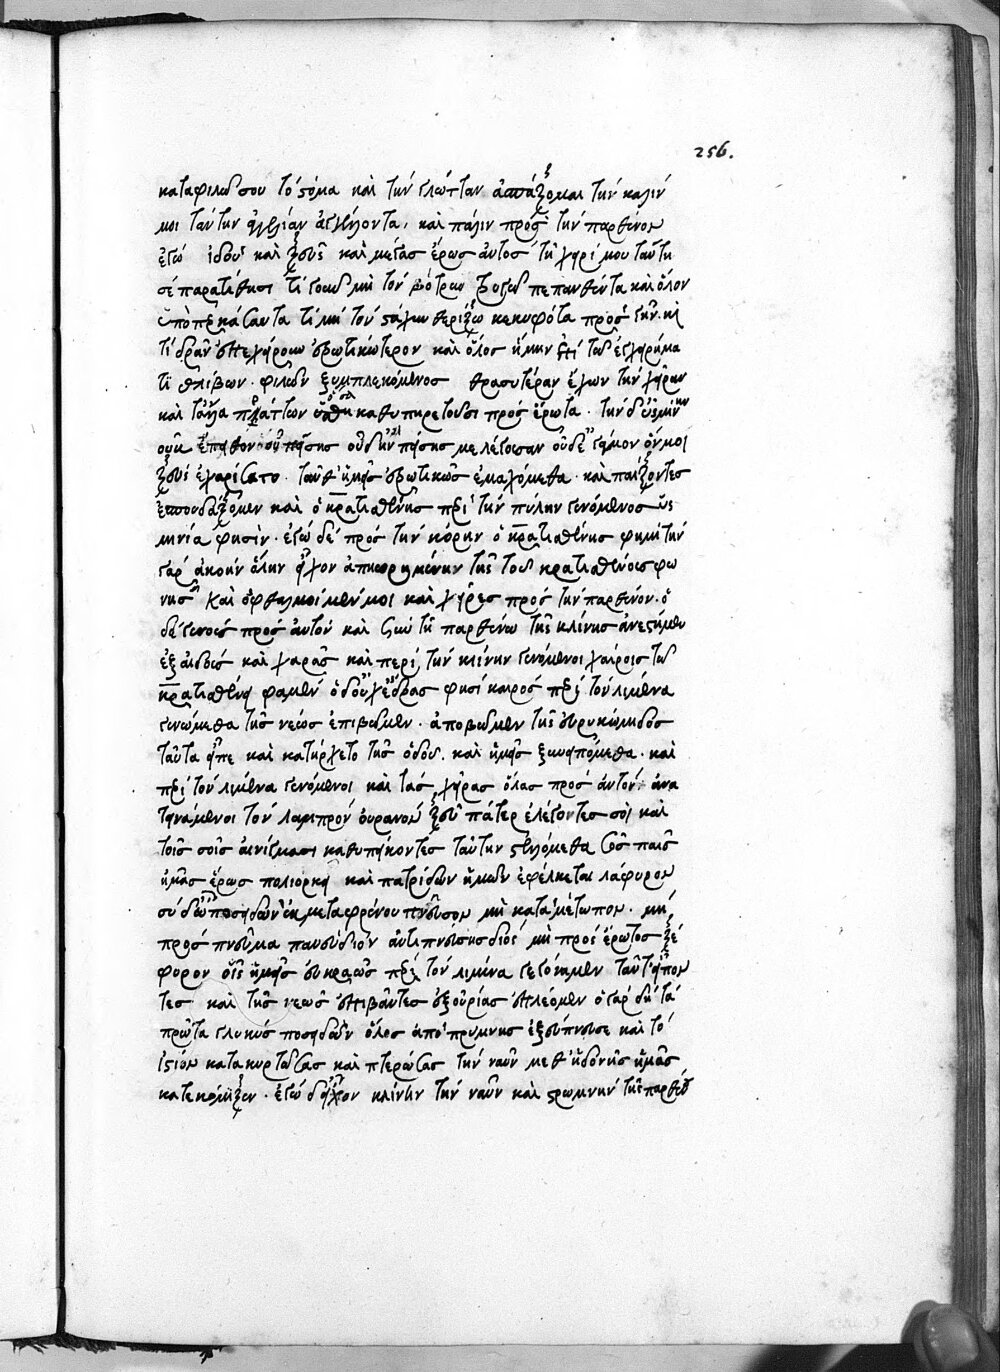 256.
καταφιλῶ σου τὸ στόμα καὶ τὴν γλῶτταν ἀσπάζομαι τὴν καλήν
μοι ταύτην ἀγγελίαν ἀγγέλλοντα, καὶ πάλιν πρὸς τὴν παρθένον
ἐγώ ἰδοὺ καὶ ζεὺς καὶ μέγας ἔρως αὐτὸς τῇ χειρί μου ταύτη
σὲ παρατίθησι τί γοῦν μὴ τὸν βότρυν τρυγῶ πεπανθέντα καὶ ὅλον
τί μὴ τὸν στάχυν θερίζω κεκυφότα πρὸς γῆν. καὶ
τί δρᾶν ἐπεχείρουν ἐρωτικώτερον καὶ ὅλος ἤμην ἐπὶ τῶ ἐγχείρημα
τι θλίβων. φιλῶν συμπλεκόμενος θρασυτέραν ἔχων τὴν χεῖρα
καὶ τἄλλα πλάττων καθυπηρετοῦσι πρὸς ἔρωτα. τὴν δ'
οὐκ ἔπειθον οὐδὲν μελέτωσαν οὐδὲ γάμον ὅν μοι
ζεὺς ἐχαρίσατο. ταῦθ' ἡμεῖς ἐρωτικῶς ἐμαχόμεθα. καὶ παίζοντες
ἐσπουδάζομεν καὶ ὁ κρατισθένης περὶ τὴν πύλην γενόμενος ὑσ
μινία φησίν. ἐγὼ δὲ πρὸς τὴν κόρην ὁ κρατισθένης φημί τὴν
γὰρ ἀκοὴν ὅλην εἶχον ἀπῃωρημένην τῆς τοῦ κρατισθένους φω
νῆς καὶ ὀφθαλμοὶ μέν μοι καὶ χεῖρες πρὸς τὴν παρθένον. ὁ
δὲ γε νοῦς πρὸς αὐτὸν καὶ σὺν τῇ παρθένω τῆς κλίνης ἀνέστημεν
ἐξ αἰδοῦς καὶ χαρᾶς καὶ περὶ τὴν κλίνην γενόμενοι χαίροις τῶ
κρατισθένη φαμέν ὁ δ' οὐχ ἕδρας φησί καιρός περὶ τὸν λιμένα
γενώμεθα τῆς νεὼς ἐπιβῶμεν. ἀποβῶμεν τῆς εὐρυκώμιδος
ταῦτα εἶπε καὶ κατήρχετο τῆς ὁδοῦ. καὶ ἡμεῖς ξυνειπόμεθα. καὶ
περὶ τὸν λιμένα γενόμενοι καὶ τὰς χεῖρας ὅλας πρὸς αὐτὸν ἀνα
τεινάμενοι τὸν λαμπρὸν οὐρανὸν ζεῦ πάτερ ἐλέγοντες σοὶ καὶ
τοῖς σοῖς αἰνίγμασι καθυπείκοντες ταύτην στελλόμεθα σὸς παῖς
ἡμᾶς ἔρως πολιορκεῖ καὶ πατρίδων ἡμῶν ἐφέλκεται λάφυρον
σὺ δ' ὦ ποσειδῶν ἐκ μεταφρένου πνεῦσον μὴ κατὰ μέτωπον. μὴ
πρὸς πνεῦμα παυσύδιον ἀντιπνεύσῃς διὸς μὴ πρὸς ἔρωτος ζέ
φυρον οἷς ἡμεῖς εὐκραῶς περὶ τὸν λιμένα γεγόναμεν ταῦτ' εἰπόν
τες καὶ τῆς νεὼς ἐπιβάντες ἐξουρίας ἐπλέομεν ὁ γὰρ δὴ τὰ
πρῶτα γλυκὺς ποσειδῶν ὅλος ἀπὸ πρύμνης ἐξέπνευσε καὶ τὸ
ἱστίον κατακυρτώσας καὶ πτερώσας τὴν ναῦν μεθ' ἡδονῆς ἡμᾶς
κατεκόμιζεν. ἐγὼ δ' εἶχον κλίνην τὴν ναῦν καὶ στρωμνὴν τῆς παρθένου